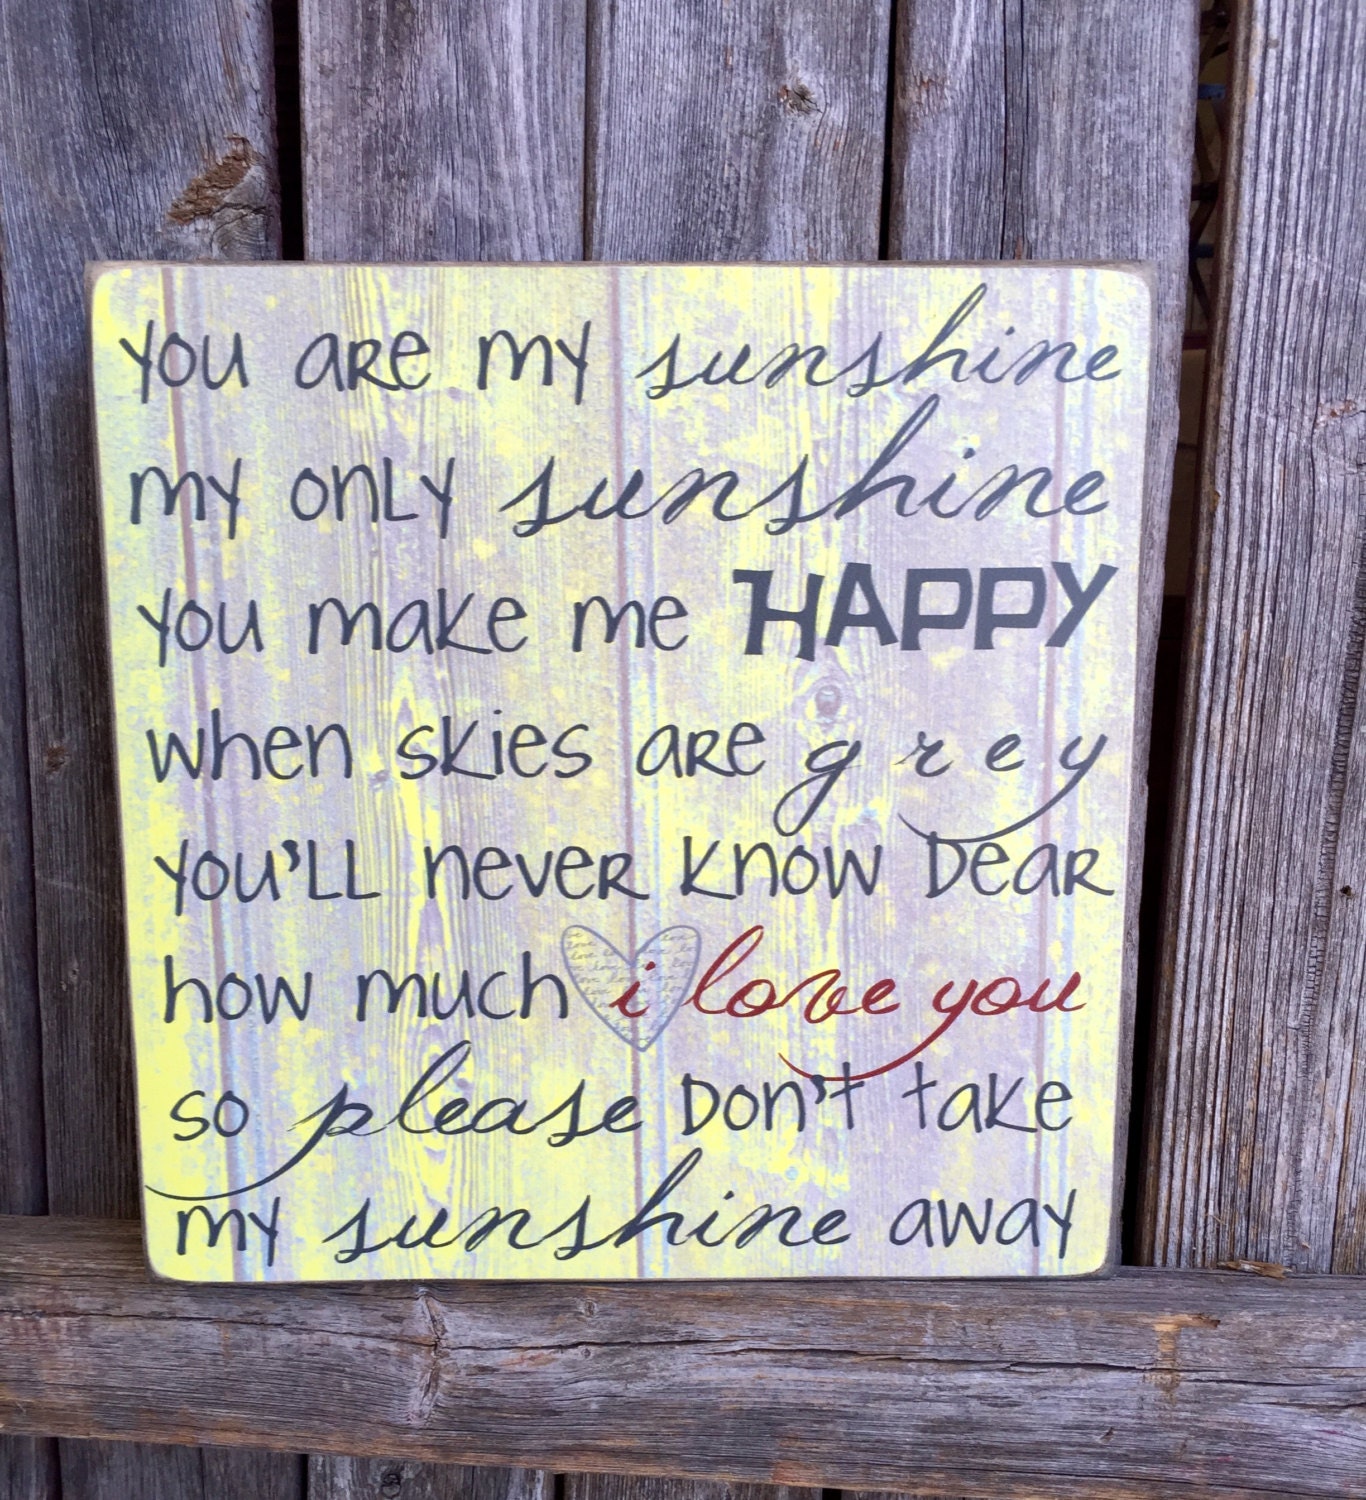 you are my sunshine
my only sunshine
you make me HAPPY
when skies are grey
you'll never know dear
how much i love you
so please don't take
my sunshine away